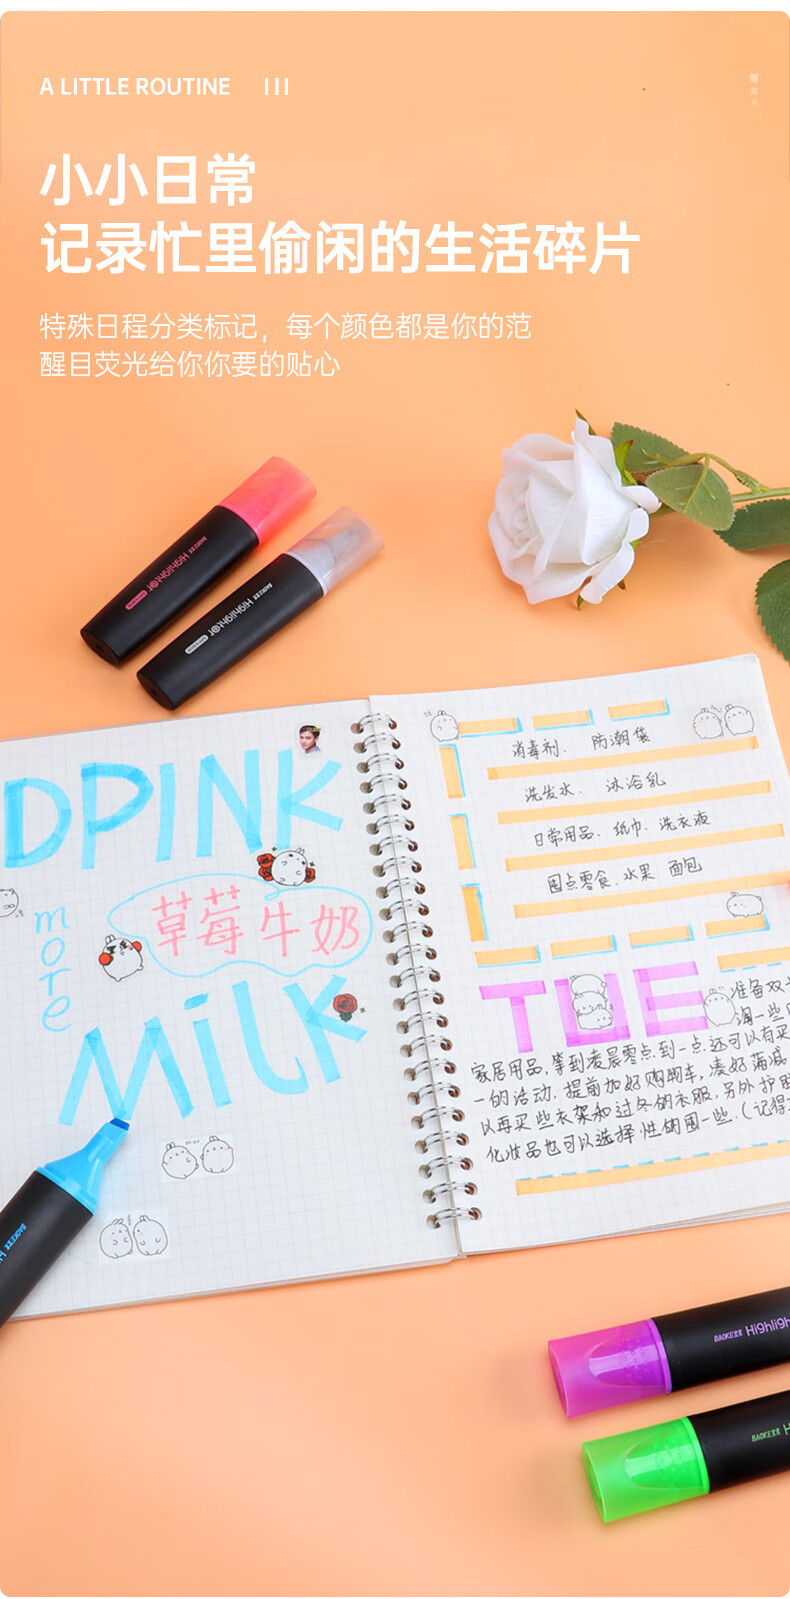 A LITTLE ROUTINE
小小日常
记录忙里偷闲的生活碎片
特殊日程分类标记，每个颜色都是你的范
醒目荧光给你你要的贴心
BAOKE宝克 Highlighter
BAOKE宝克 Highlighter
DPINK
more
草莓牛奶
MiLK
消毒剂、防潮袋
洗发水、沐浴乳
日常用品、纸巾、洗衣液
囤点零食、水果 面包
TUE
准备双十
淘一些
家居用品，等到凌晨零点到一点还可以有买
一的活动，提前加好购物车，凑好满减
以再买些衣架和过冬的衣服，另外护肤
化妆品也可以选择性的囤一些.(记得
BAOKE宝克 Highligh
BAOKE宝克 H